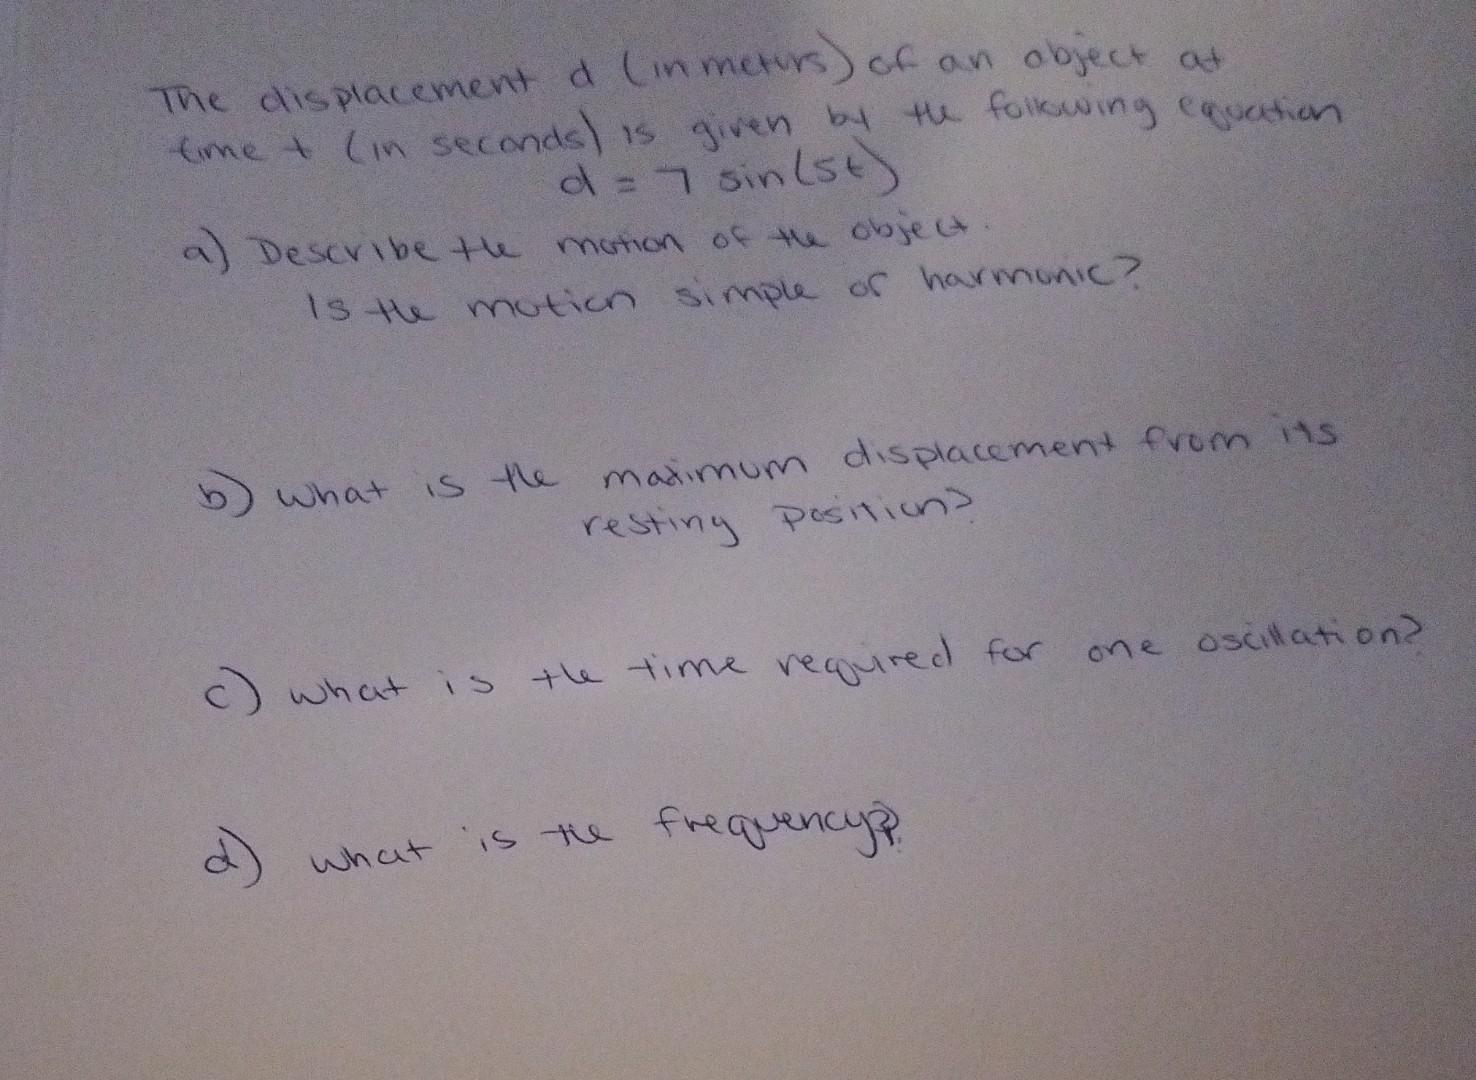 The displacement d (in meters) of an object at
time t (in seconds) is given by the following equation
d = 7 sin(5t)
a) Describe the motion of the object.
Is the motion simple or harmonic?
b) what is the maximum displacement from its
resting position?
c) what is the time required for one oscillation?
d) what is the frequency?